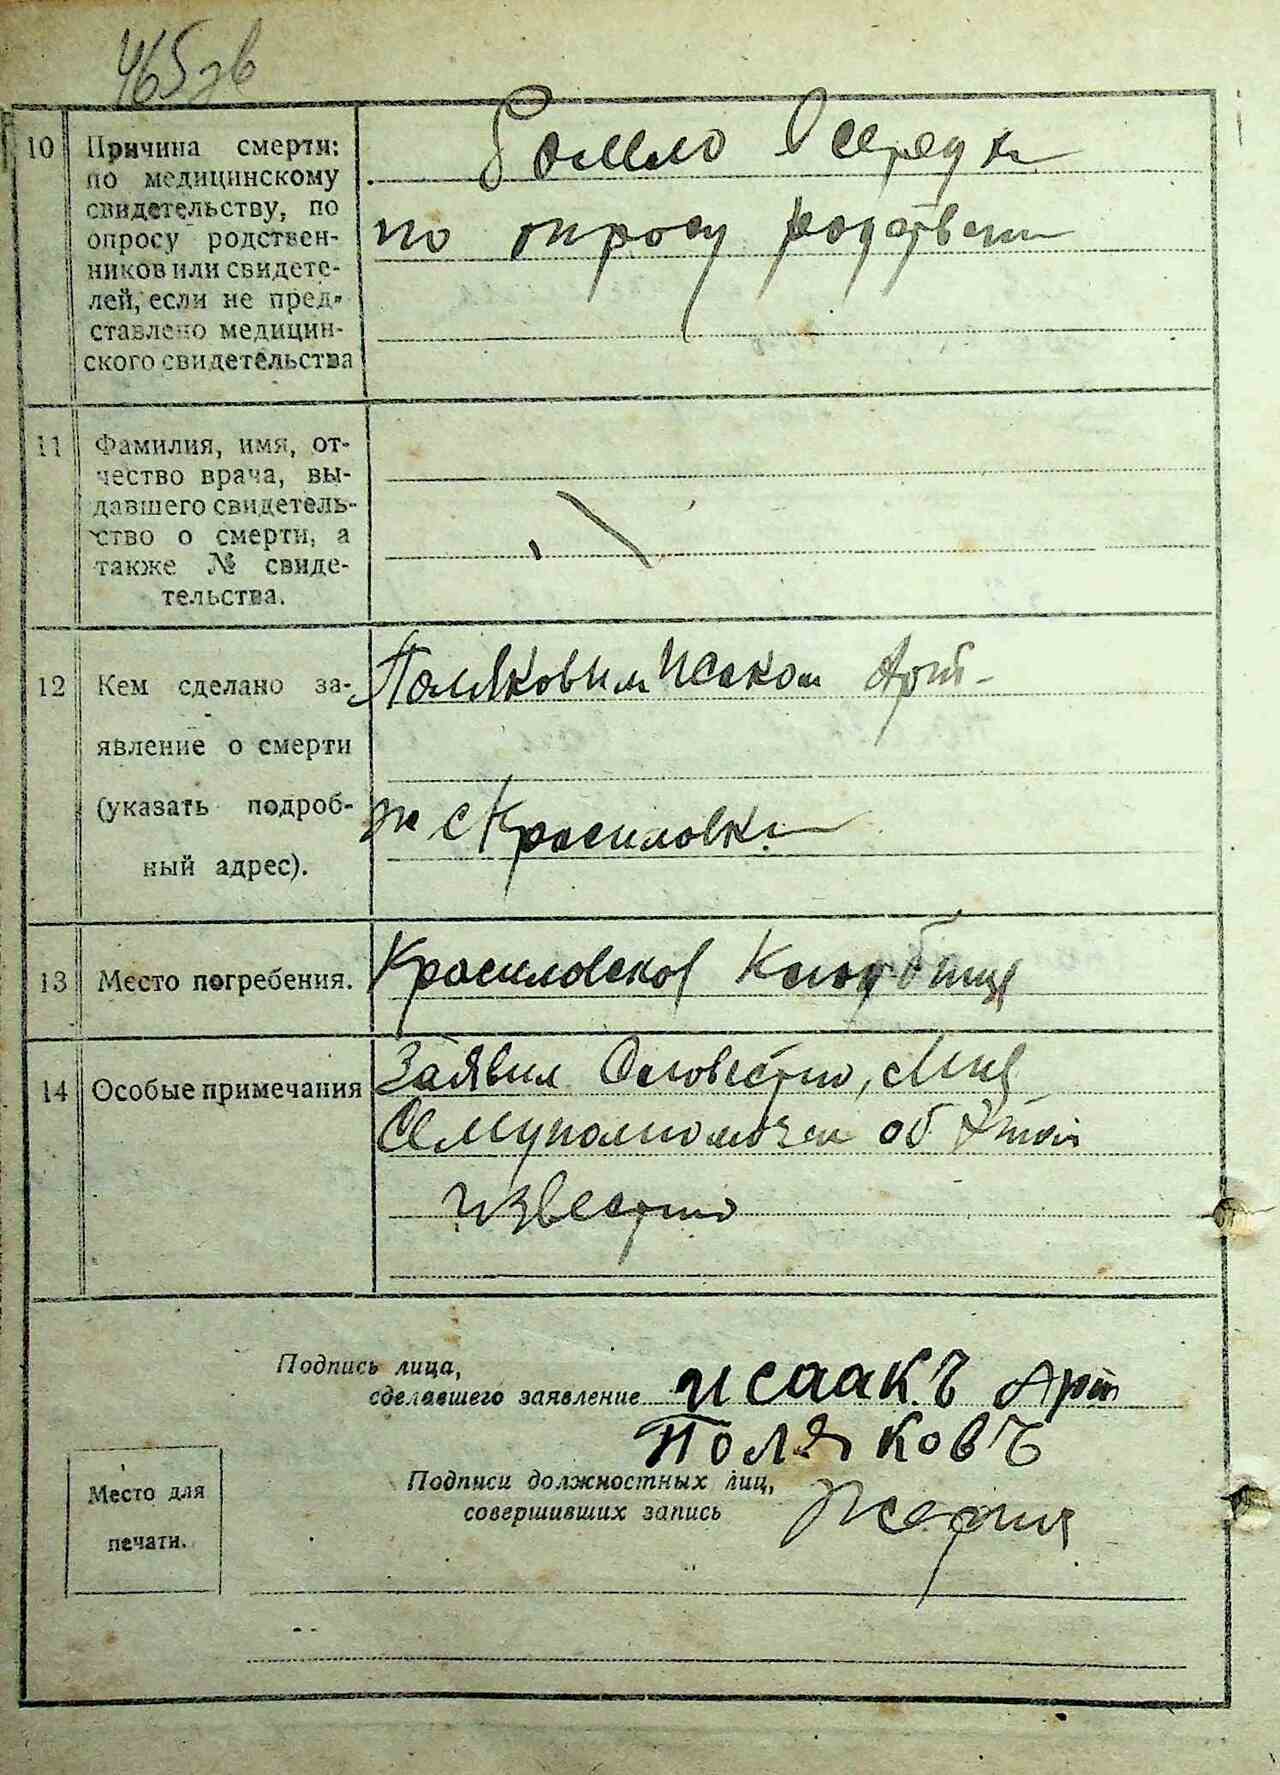 465 зв
10 Причина смерти:
по медицинскому
свидетельству, по
опросу родствен-
ников или свидете-
лей, если не пред-
ставлено медицин-
ского свидетельства
по опросу родствен
11 Фамилия, имя, от-
чество врача, вы-
давшего свидетель-
ство о смерти, а
также № свиде-
тельства.
12 Кем сделано за-
явление о смерти
(указать подроб-
ный адрес).
Поляковим Исаком Арт-
ж с Красиловки
13 Место погребения.
Красиловское Кладбище
14 Особые примечания
Заявил
об этой
известно
Подпись лица,
сделавшего заявление Исаакъ Арт
Поляковъ
Подписи должностных лиц,
совершивших запись
Место для
печати.